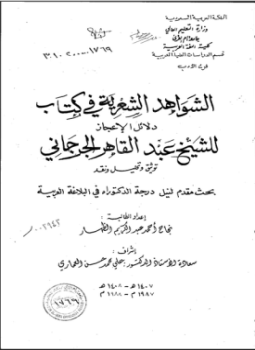 المملكة العربية السعودية
وزارة التعليم العالي
جامعة أم القرى
كلية اللغة العربية
قسم الدراسات العليا العربية
فرع الأدب
٣١٠٢٠٠٠٠١٧٦٩
الشواهد الشعرية في كتاب
دلائل الإعجاز
للشيخ عبد القاهر الجرجاني
توثيق وتحليل ونقد
بحث مقدم لنيل درجة الدكتوراه في البلاغة العربية
إعداد الطالبة:
نجاح أحمد عبد الكريم الظهار
إشراف:
سعادة الأستاذ الدكتور: علي محمد حسن العماري
١٤٠٧ هـ - ١٤٠٨ هـ
١٩٨٧ م - ١٩٨٨ م
١٧٦٩